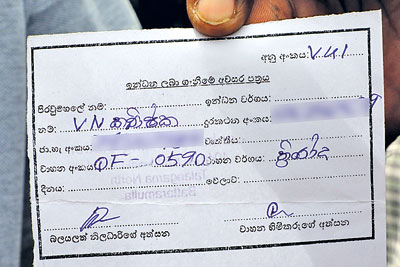 අනු අංකය: V.U.1
ඉන්ධන ලබා ගැනීමේ අවසර පත්‍රය
පිරවුම්හලේ නම: ඉන්ධන වර්ගය:
නම: V N දුරකථන අංකය:
ජා.හැ අංකය: වෘත්තිය:
වාහන අංකය: QF - 0590 වාහන වර්ගය: ත්‍රීරෝද
දිනය: වේලාව:
බලයලත් නිලධාරිගේ අත්සන වාහන හිමිකරුගේ අත්සන